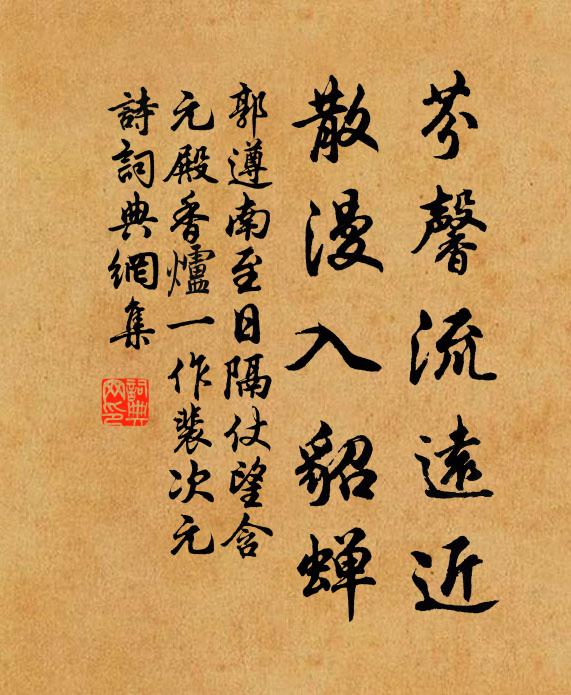 芬馨流遠近
散漫入貂蟬
郭遵南至日隔仗望含
元殿香爐一作裴次元
詩詞典網集
詞典網印